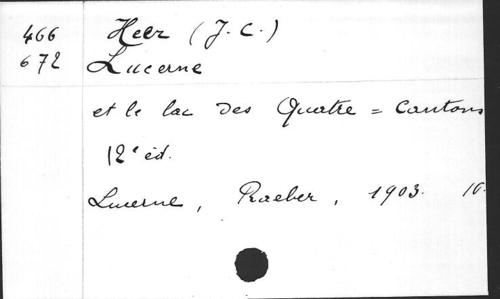 466 Heer (J. C.)
672 Lucerne
et le lac des Quatre = Cantons
12e éd.
Lucerne, Raeber, 1903. 16.